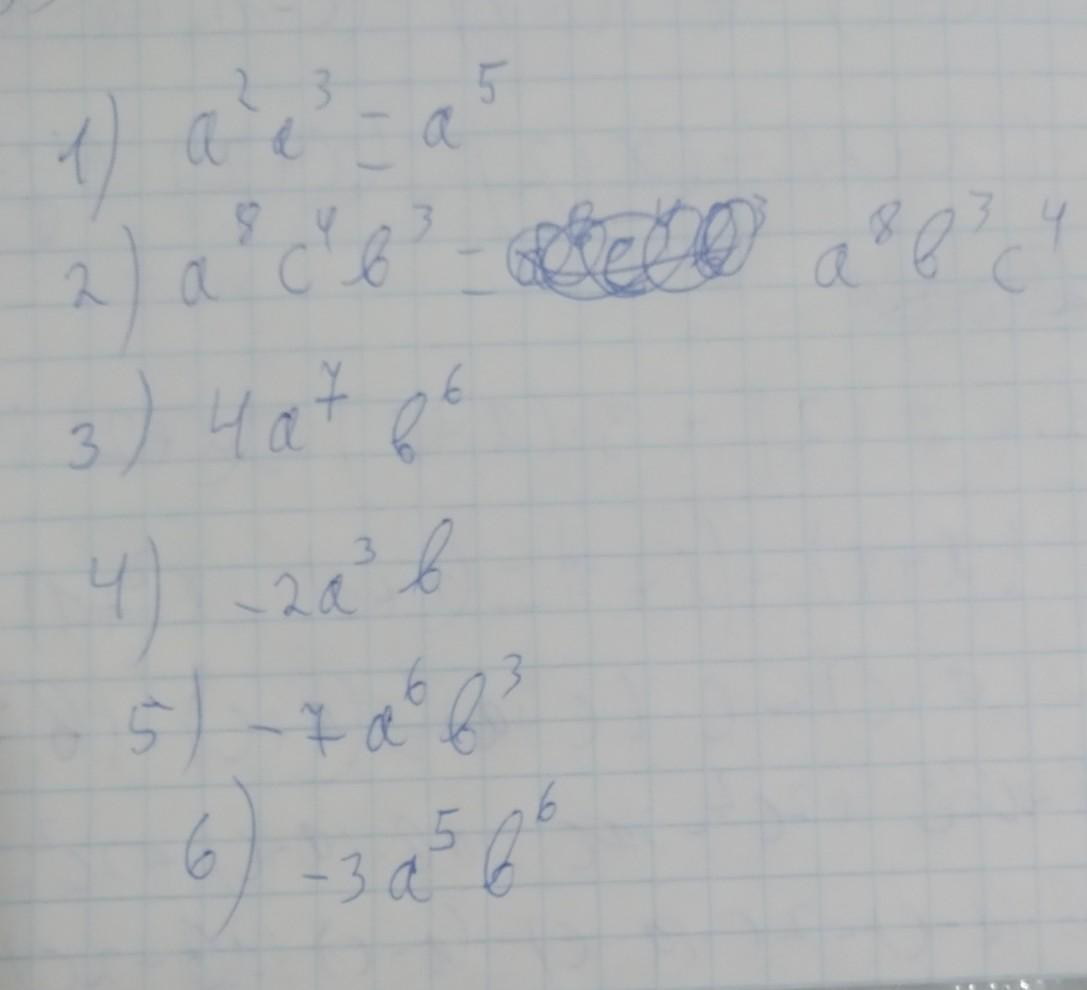 1) a²a³ = a⁵
2) a⁸c⁴b³ = a⁸b³c⁴
3) 4a⁷b⁶
4) -2a³b
5) -7a⁶b³
6) -3a⁵b⁶